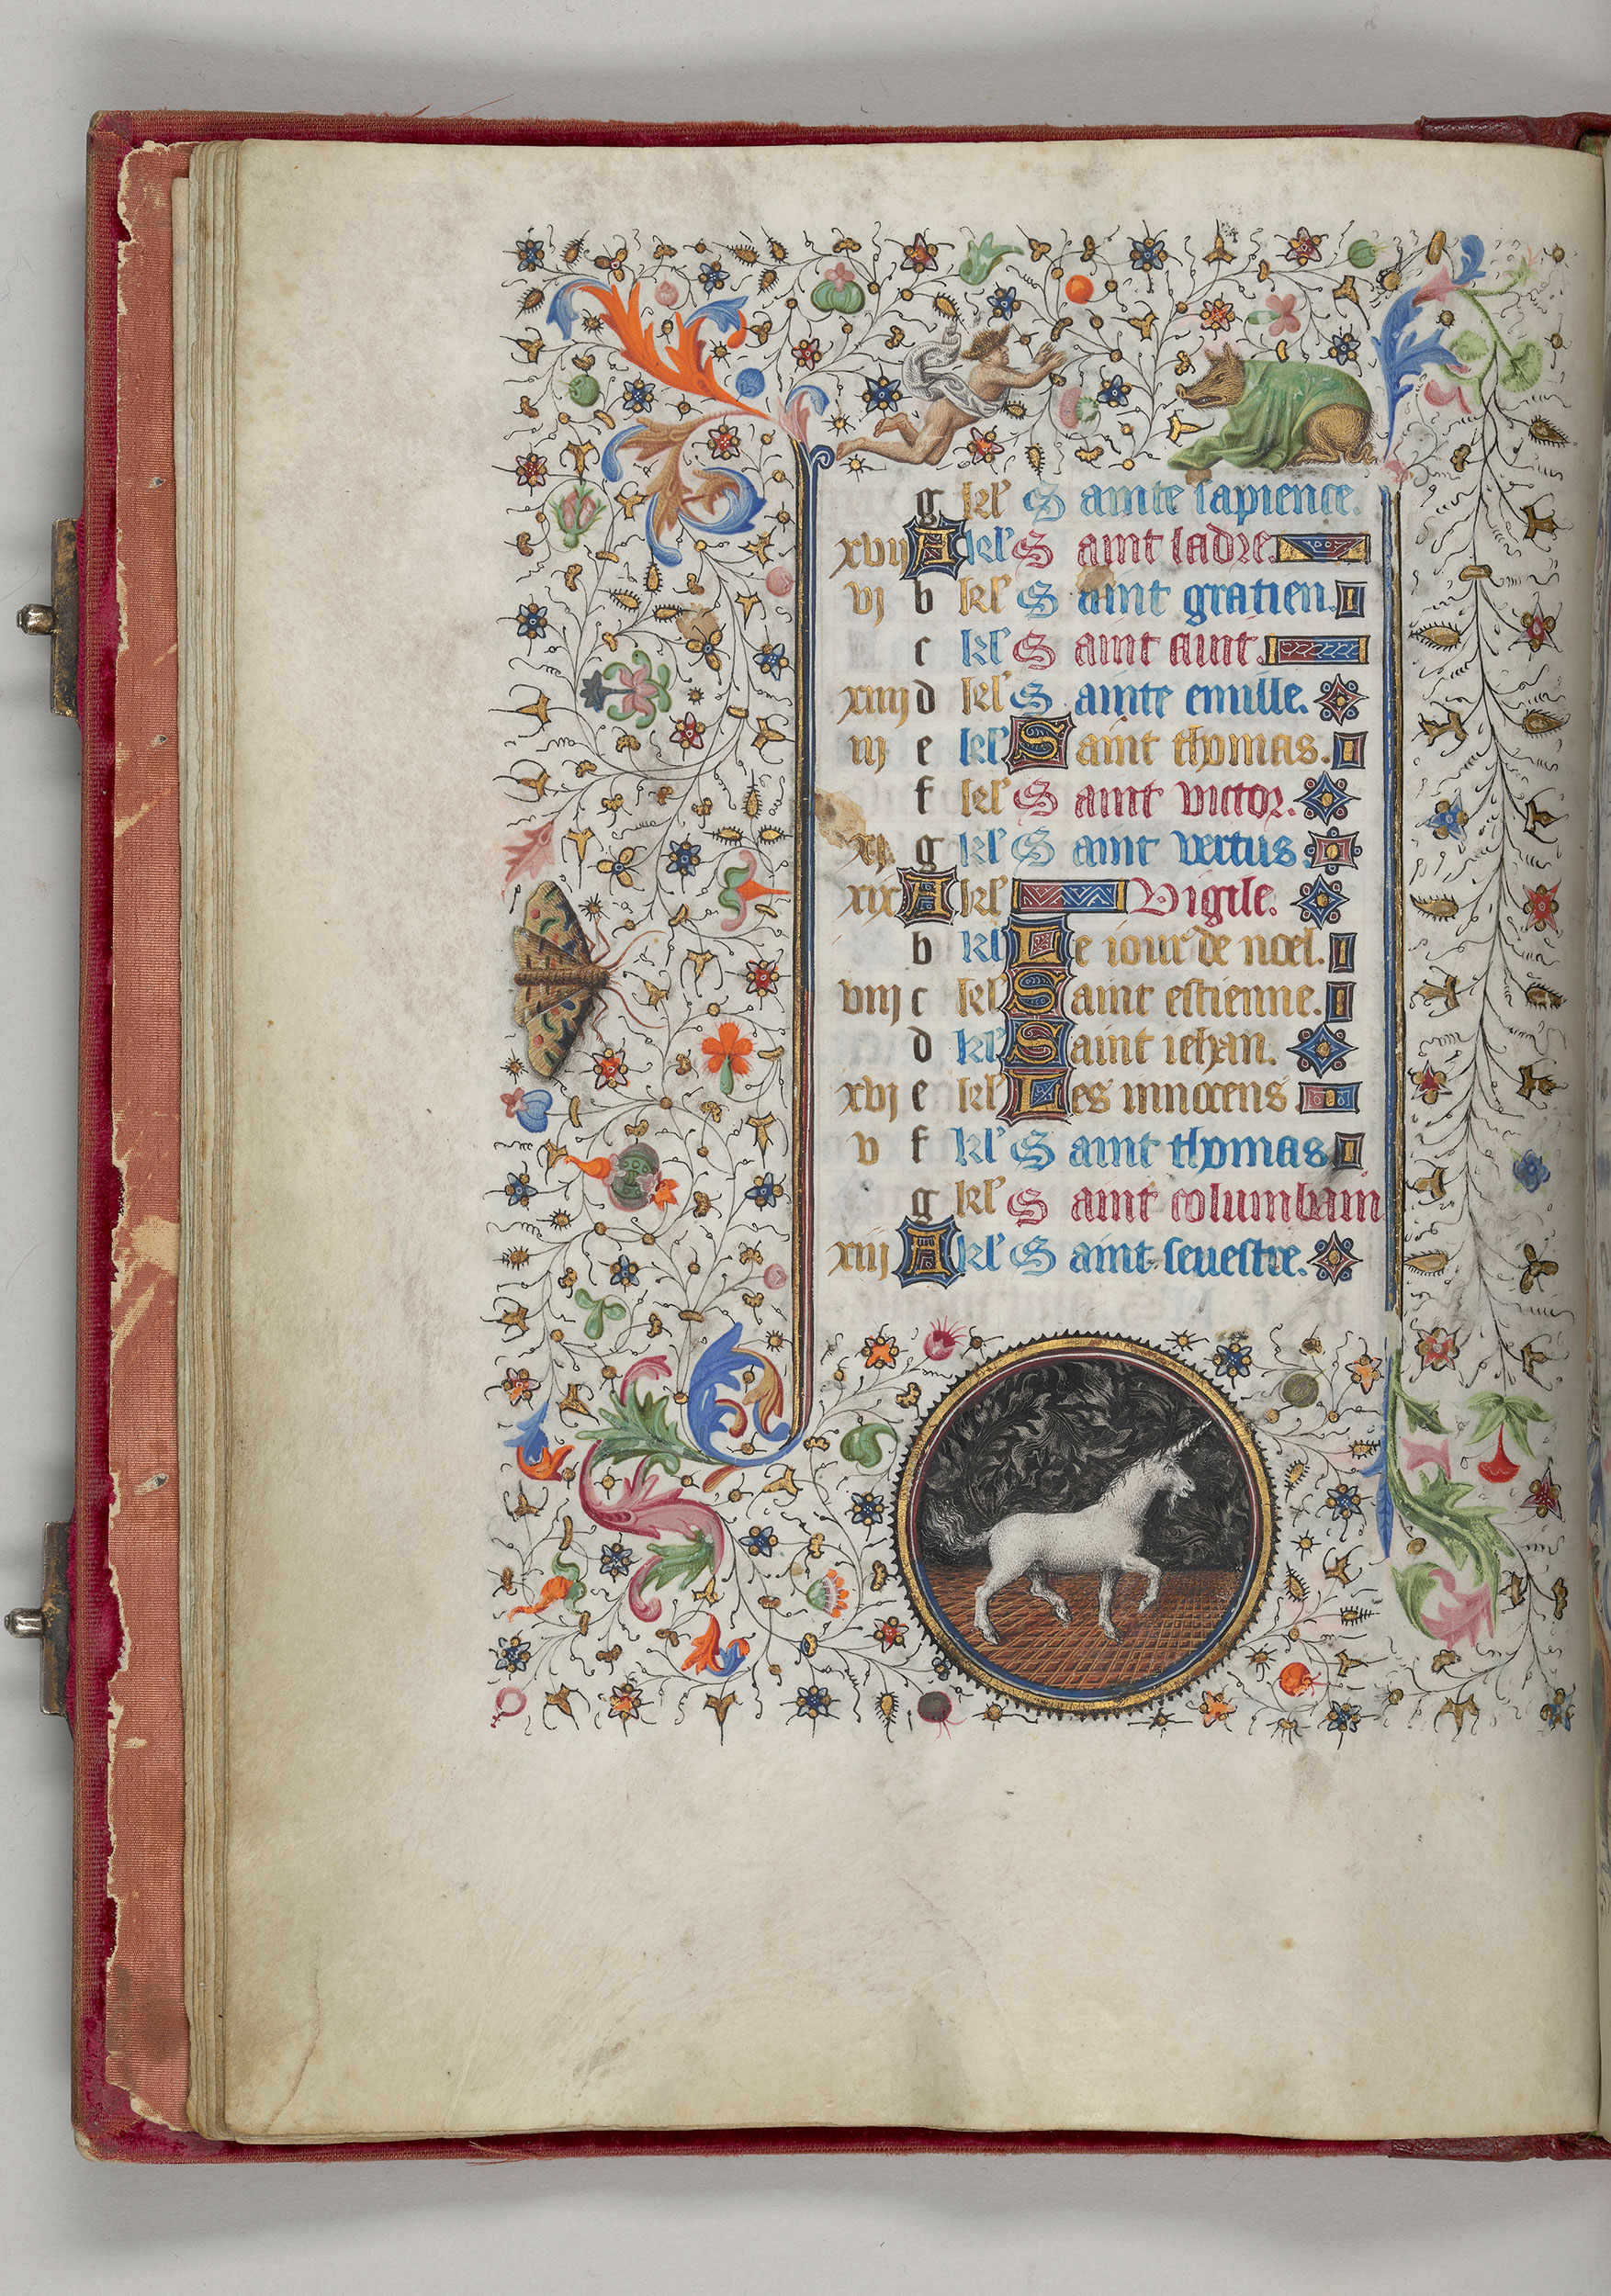 g kl' Sainte sapience.
xvij A kl' Saint ladre.
vj b kl' Saint gratien.
c kl' Saint aint.
xiiij d kl' Sainte emille.
iij e kl' Saint thomas.
f kl' Saint victor.
xj. g kl' Saint vertus.
xix A kl' Vigile.
b kl' Le iour de noel.
viij c kl' Saint estienne.
d kl' Saint iehan.
xvj e kl' Les innocens
v f kl' Saint thomas
g kl' Saint columbain
xiij A kl' Saint seuestre.